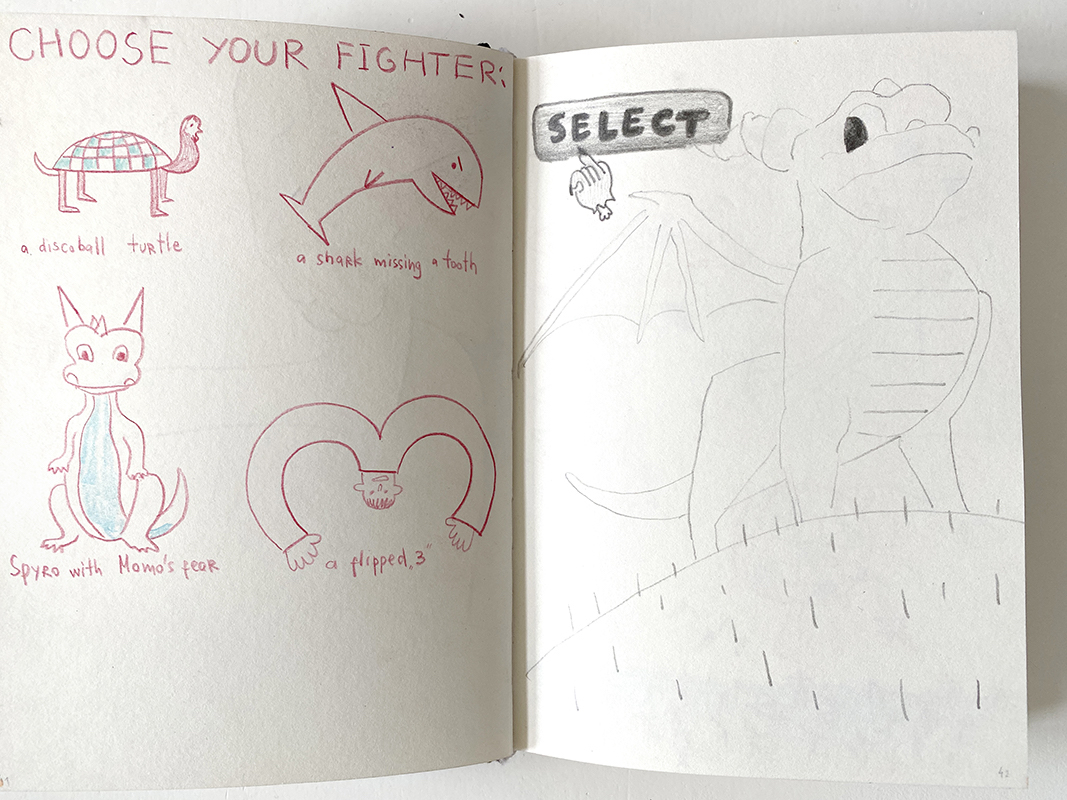 CHOOSE YOUR FIGHTER:
a discoball turtle
a shark missing a tooth
Spyro with Momo's fear
a flipped „3"
SELECT
42